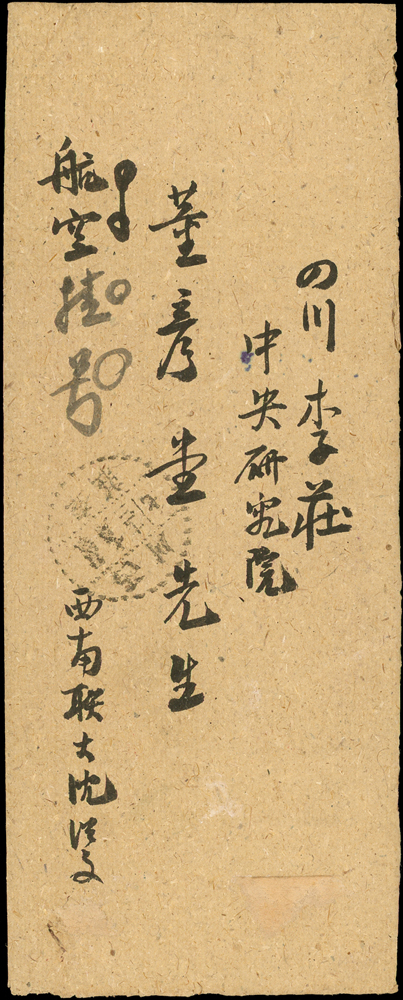 四川李莊
中央研究院
董彥堂先生
航空掛号
西南联大沈從文